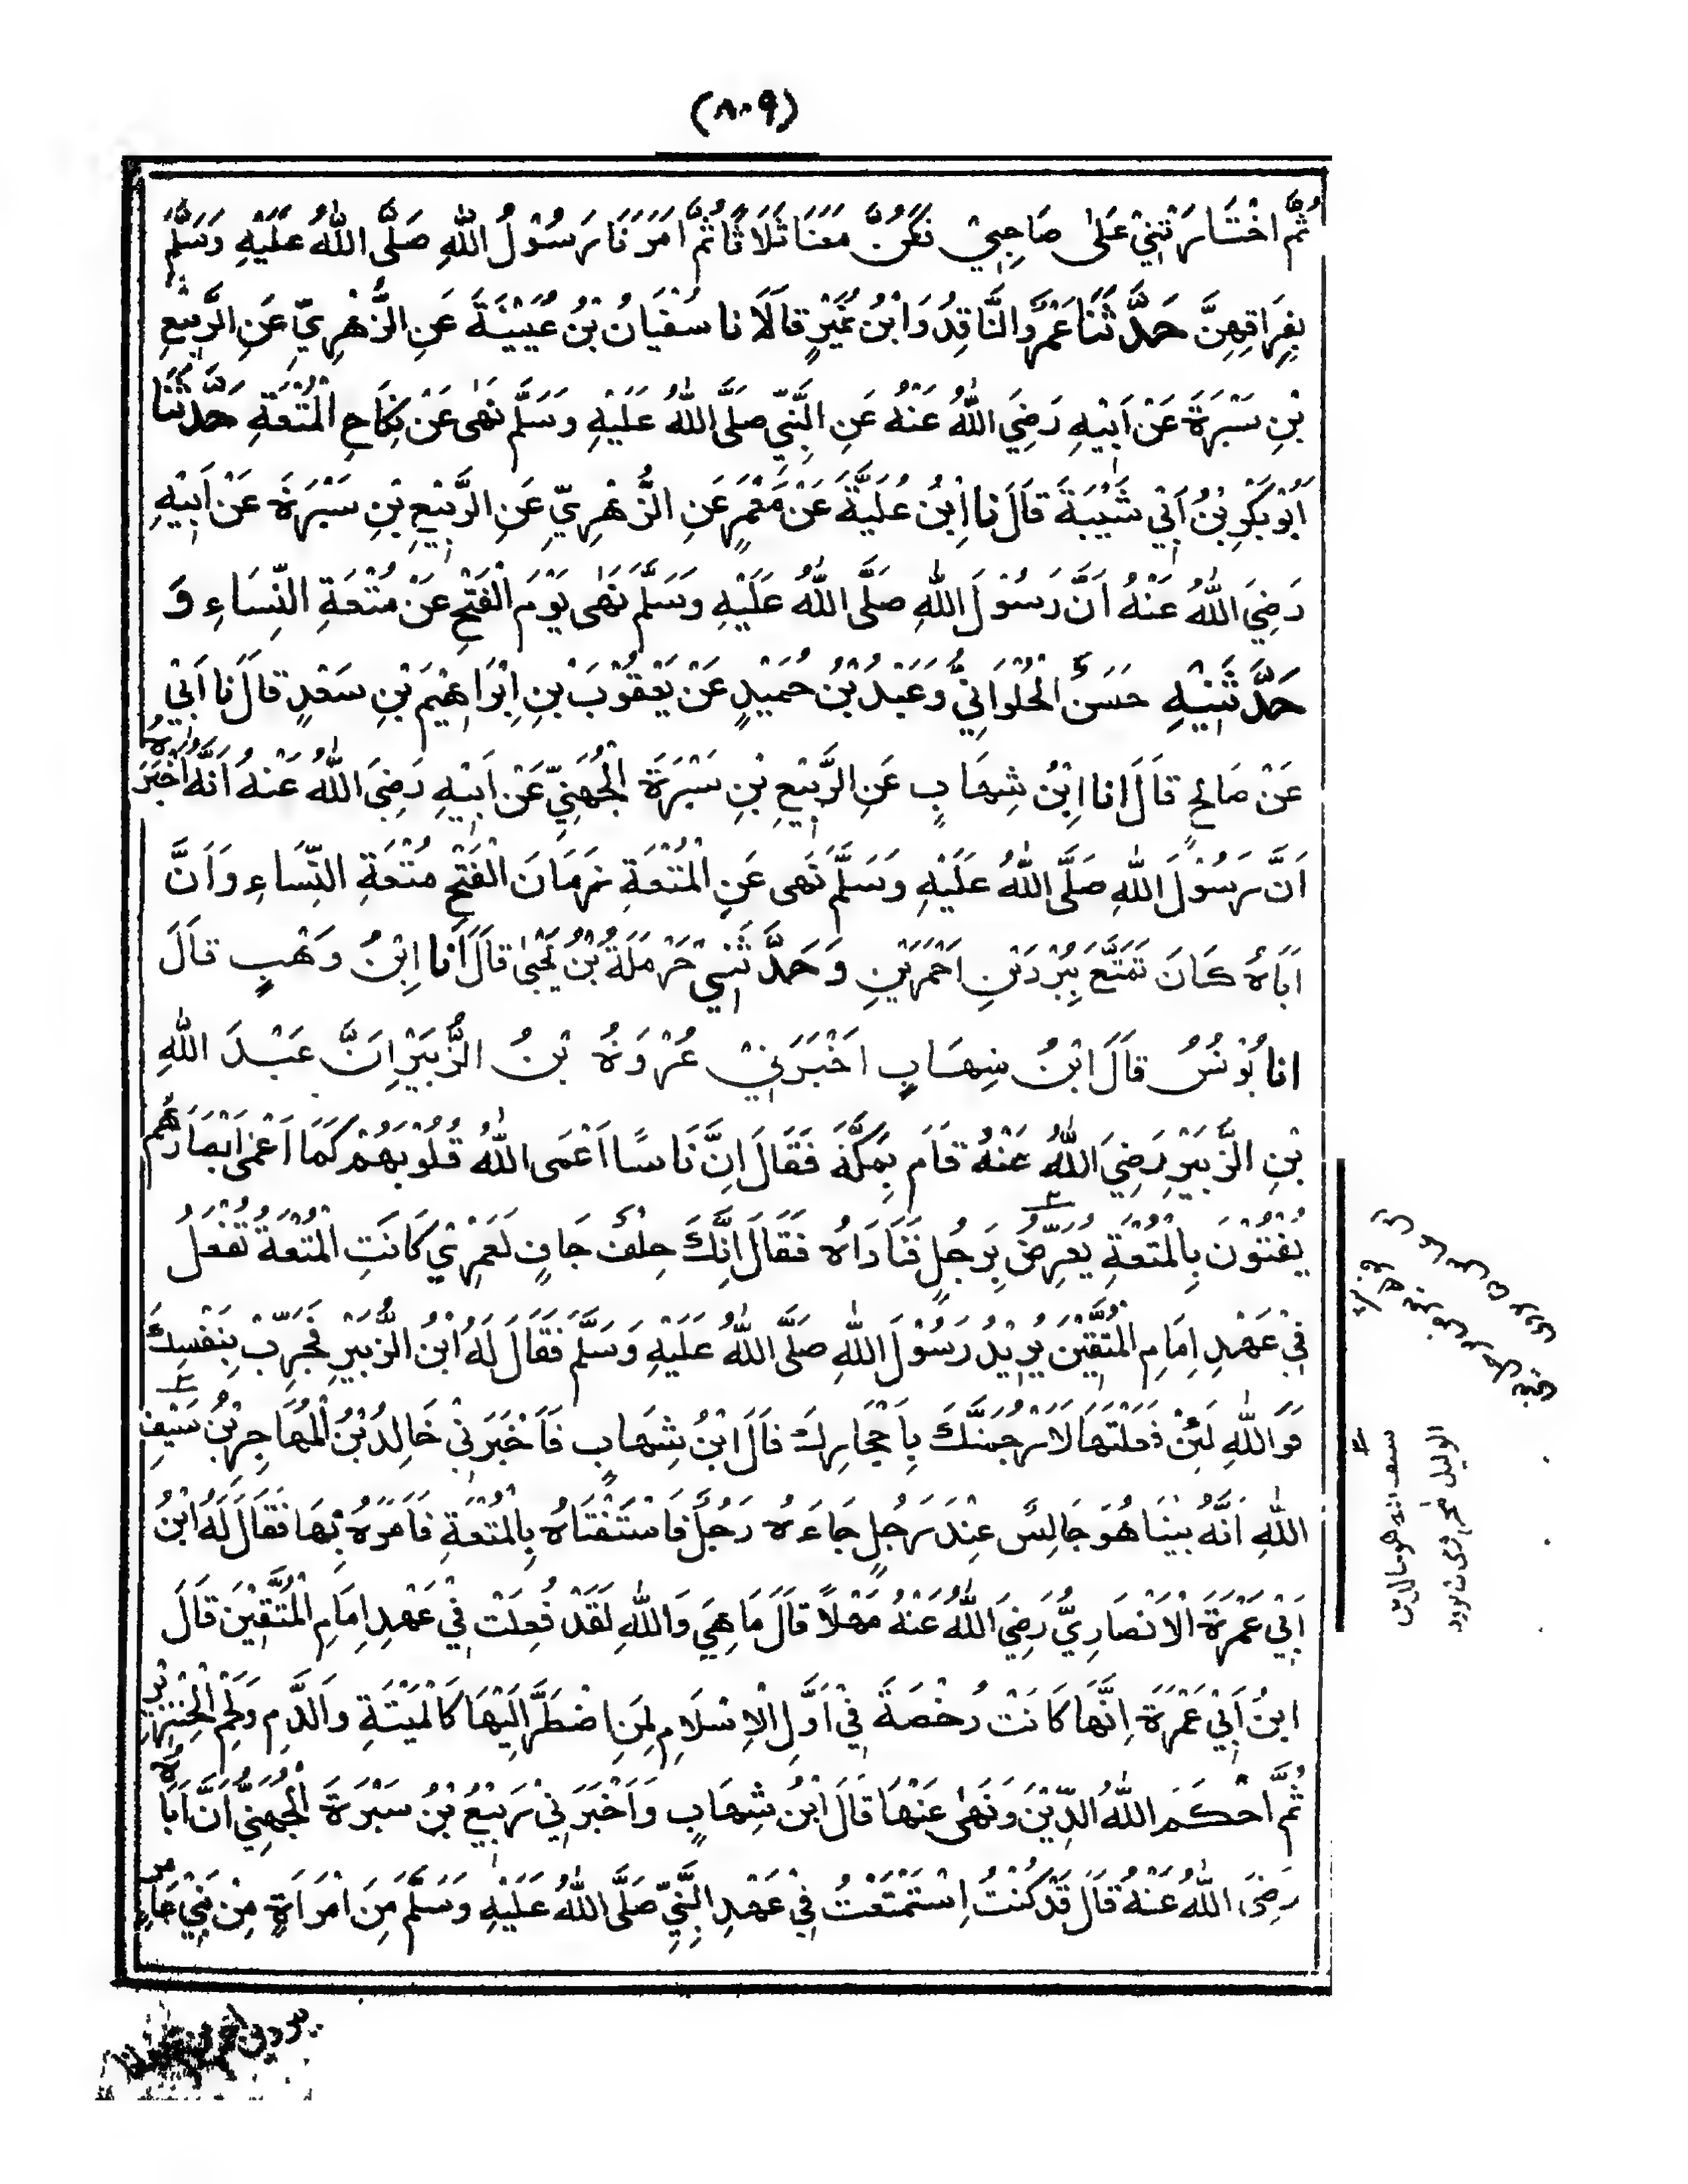 (٨٠٩)
ثُمَّ اخْتَارَتْنِيْ عَلٰى صَاحِبِيْ فَكُنَّ مَعَنَا ثَلَاثًا ثُمَّ اَمَرَنَا رَسُوْلُ اللهِ صَلَّى اللهُ عَلَيْهِ وَسَلَّمَ
بِفِرَاقِهِنَّ حَدَّثَنَا عَمْرٌو النَّاقِدُ وَابْنُ نُمَيْرٍ قَالَا نا سُفْيَانُ بْنُ عُيَيْنَةَ عَنِ الزُّهْرِيِّ عَنِ الرَّبِيْعِ
بْنِ سَبْرَةَ عَنْ اَبِيْهِ رَضِيَ اللهُ عَنْهُ عَنِ النَّبِيِّ صَلَّى اللهُ عَلَيْهِ وَسَلَّمَ نَهٰى عَنْ نِكَاحِ الْمُتْعَةِ حَدَّثَنَا
اَبُوْبَكْرِ بْنُ اَبِيْ شَيْبَةَ قَالَ نا ابْنُ عُلَيَّةَ عَنْ مَعْمَرٍ عَنِ الزُّهْرِيِّ عَنِ الرَّبِيْعِ بْنِ سَبْرَةَ عَنْ اَبِيْهِ
رَضِيَ اللهُ عَنْهُ اَنَّ رَسُوْلَ اللهِ صَلَّى اللهُ عَلَيْهِ وَسَلَّمَ نَهٰى يَوْمَ الْفَتْحِ عَنْ مُتْعَةِ النِّسَاءِ وَ
حَدَّثَنِيْهِ حَسَنُ الْحُلْوَانِيُّ وَعَبْدُ بْنُ حُمَيْدٍ عَنْ يَعْقُوْبَ بْنِ اِبْرَاهِيْمَ بْنِ سَعْدٍ قَالَ نا اَبِيْ
عَنْ صَالِحٍ قَالَ انا ابْنُ شِهَابٍ عَنِ الرَّبِيْعِ بْنِ سَبْرَةَ الْجُهَنِيِّ عَنْ اَبِيْهِ رَضِيَ اللهُ عَنْهُ اَنَّهُ اَخْبَرَهُ
اَنَّ رَسُوْلَ اللهِ صَلَّى اللهُ عَلَيْهِ وَسَلَّمَ نَهٰى عَنِ الْمُتْعَةِ زَمَانَ الْفَتْحِ مُتْعَةِ النِّسَاءِ وَاَنَّ
اَبَاهُ كَانَ تَمَتَّعَ بِبُرْدَيْنِ اَحْمَرَيْنِ وَحَدَّثَنِيْ حَرْمَلَةُ بْنُ يَحْيٰى قَالَ اَنا ابْنُ وَهْبٍ قَالَ
انا يُوْنُسُ قَالَ ابْنُ شِهَابٍ اَخْبَرَنِيْ عُرْوَةُ بْنُ الزُّبَيْرِ اَنَّ عَبْدَ اللهِ
بْنِ الزُّبَيْرِ رَضِيَ اللهُ عَنْهُ قَامَ بِمَكَّةَ فَقَالَ اِنَّ نَاسًا اَعْمَى اللهُ قُلُوْبَهُمْ كَمَا اَعْمٰى اَبْصَارَهُمْ
يُفْتُوْنَ بِالْمُتْعَةِ يُعَرِّضُ بِرَجُلٍ فَنَادَاهُ فَقَالَ اِنَّكَ جِلْفٌ جَافٍ لَعَمْرِيْ كَانَتِ الْمُتْعَةُ تُفْعَلُ
فِيْ عَهْدِ اِمَامِ الْمُتَّقِيْنَ يُرِيْدُ رَسُوْلَ اللهِ صَلَّى اللهُ عَلَيْهِ وَسَلَّمَ فَقَالَ لَهُ ابْنُ الزُّبَيْرِ فَجَرِّبْ بِنَفْسِكَ
فَوَاللهِ لَئِنْ فَعَلْتَهَا لَاَرْجُمَنَّكَ بِاَحْجَارِكَ قَالَ ابْنُ شِهَابٍ فَاَخْبَرَنِيْ خَالِدُ بْنُ الْمُهَاجِرِ بْنِ سَيْفِ
اللهِ اَنَّهُ بَيْنَا هُوَ جَالِسٌ عِنْدَ رَجُلٍ جَاءَهُ رَجُلٌ فَاسْتَفْتَاهُ بِالْمُتْعَةِ فَاَمَرَهُ بِهَا فَقَالَ لَهُ ابْنُ
اَبِيْ عَمْرَةَ الْاَنْصَارِيُّ رَضِيَ اللهُ عَنْهُ مَهْلًا قَالَ مَا هِيَ وَاللهِ لَقَدْ فُعِلَتْ فِيْ عَهْدِ اِمَامِ الْمُتَّقِيْنَ قَالَ
ابْنُ اَبِيْ عَمْرَةَ اِنَّهَا كَانَتْ رُخْصَةً فِيْ اَوَّلِ الْاِسْلَامِ لِمَنِ اضْطُرَّ اِلَيْهَا كَالْمَيْتَةِ وَالدَّمِ وَلَحْمِ الْخِنْزِيْرِ
ثُمَّ اَحْكَمَ اللهُ الدِّيْنَ وَنَهٰى عَنْهَا قَالَ ابْنُ شِهَابٍ وَاَخْبَرَنِيْ رَبِيْعُ بْنُ سَبْرَةَ الْجُهَنِيُّ اَنَّ اَبَاهُ
رَضِيَ اللهُ عَنْهُ قَالَ قَدْ كُنْتُ اِسْتَمْتَعْتُ فِيْ عَهْدِ النَّبِيِّ صَلَّى اللهُ عَلَيْهِ وَسَلَّمَ مِنَ امْرَاَةٍ مِنْ بَنِيْ عَامِرٍ